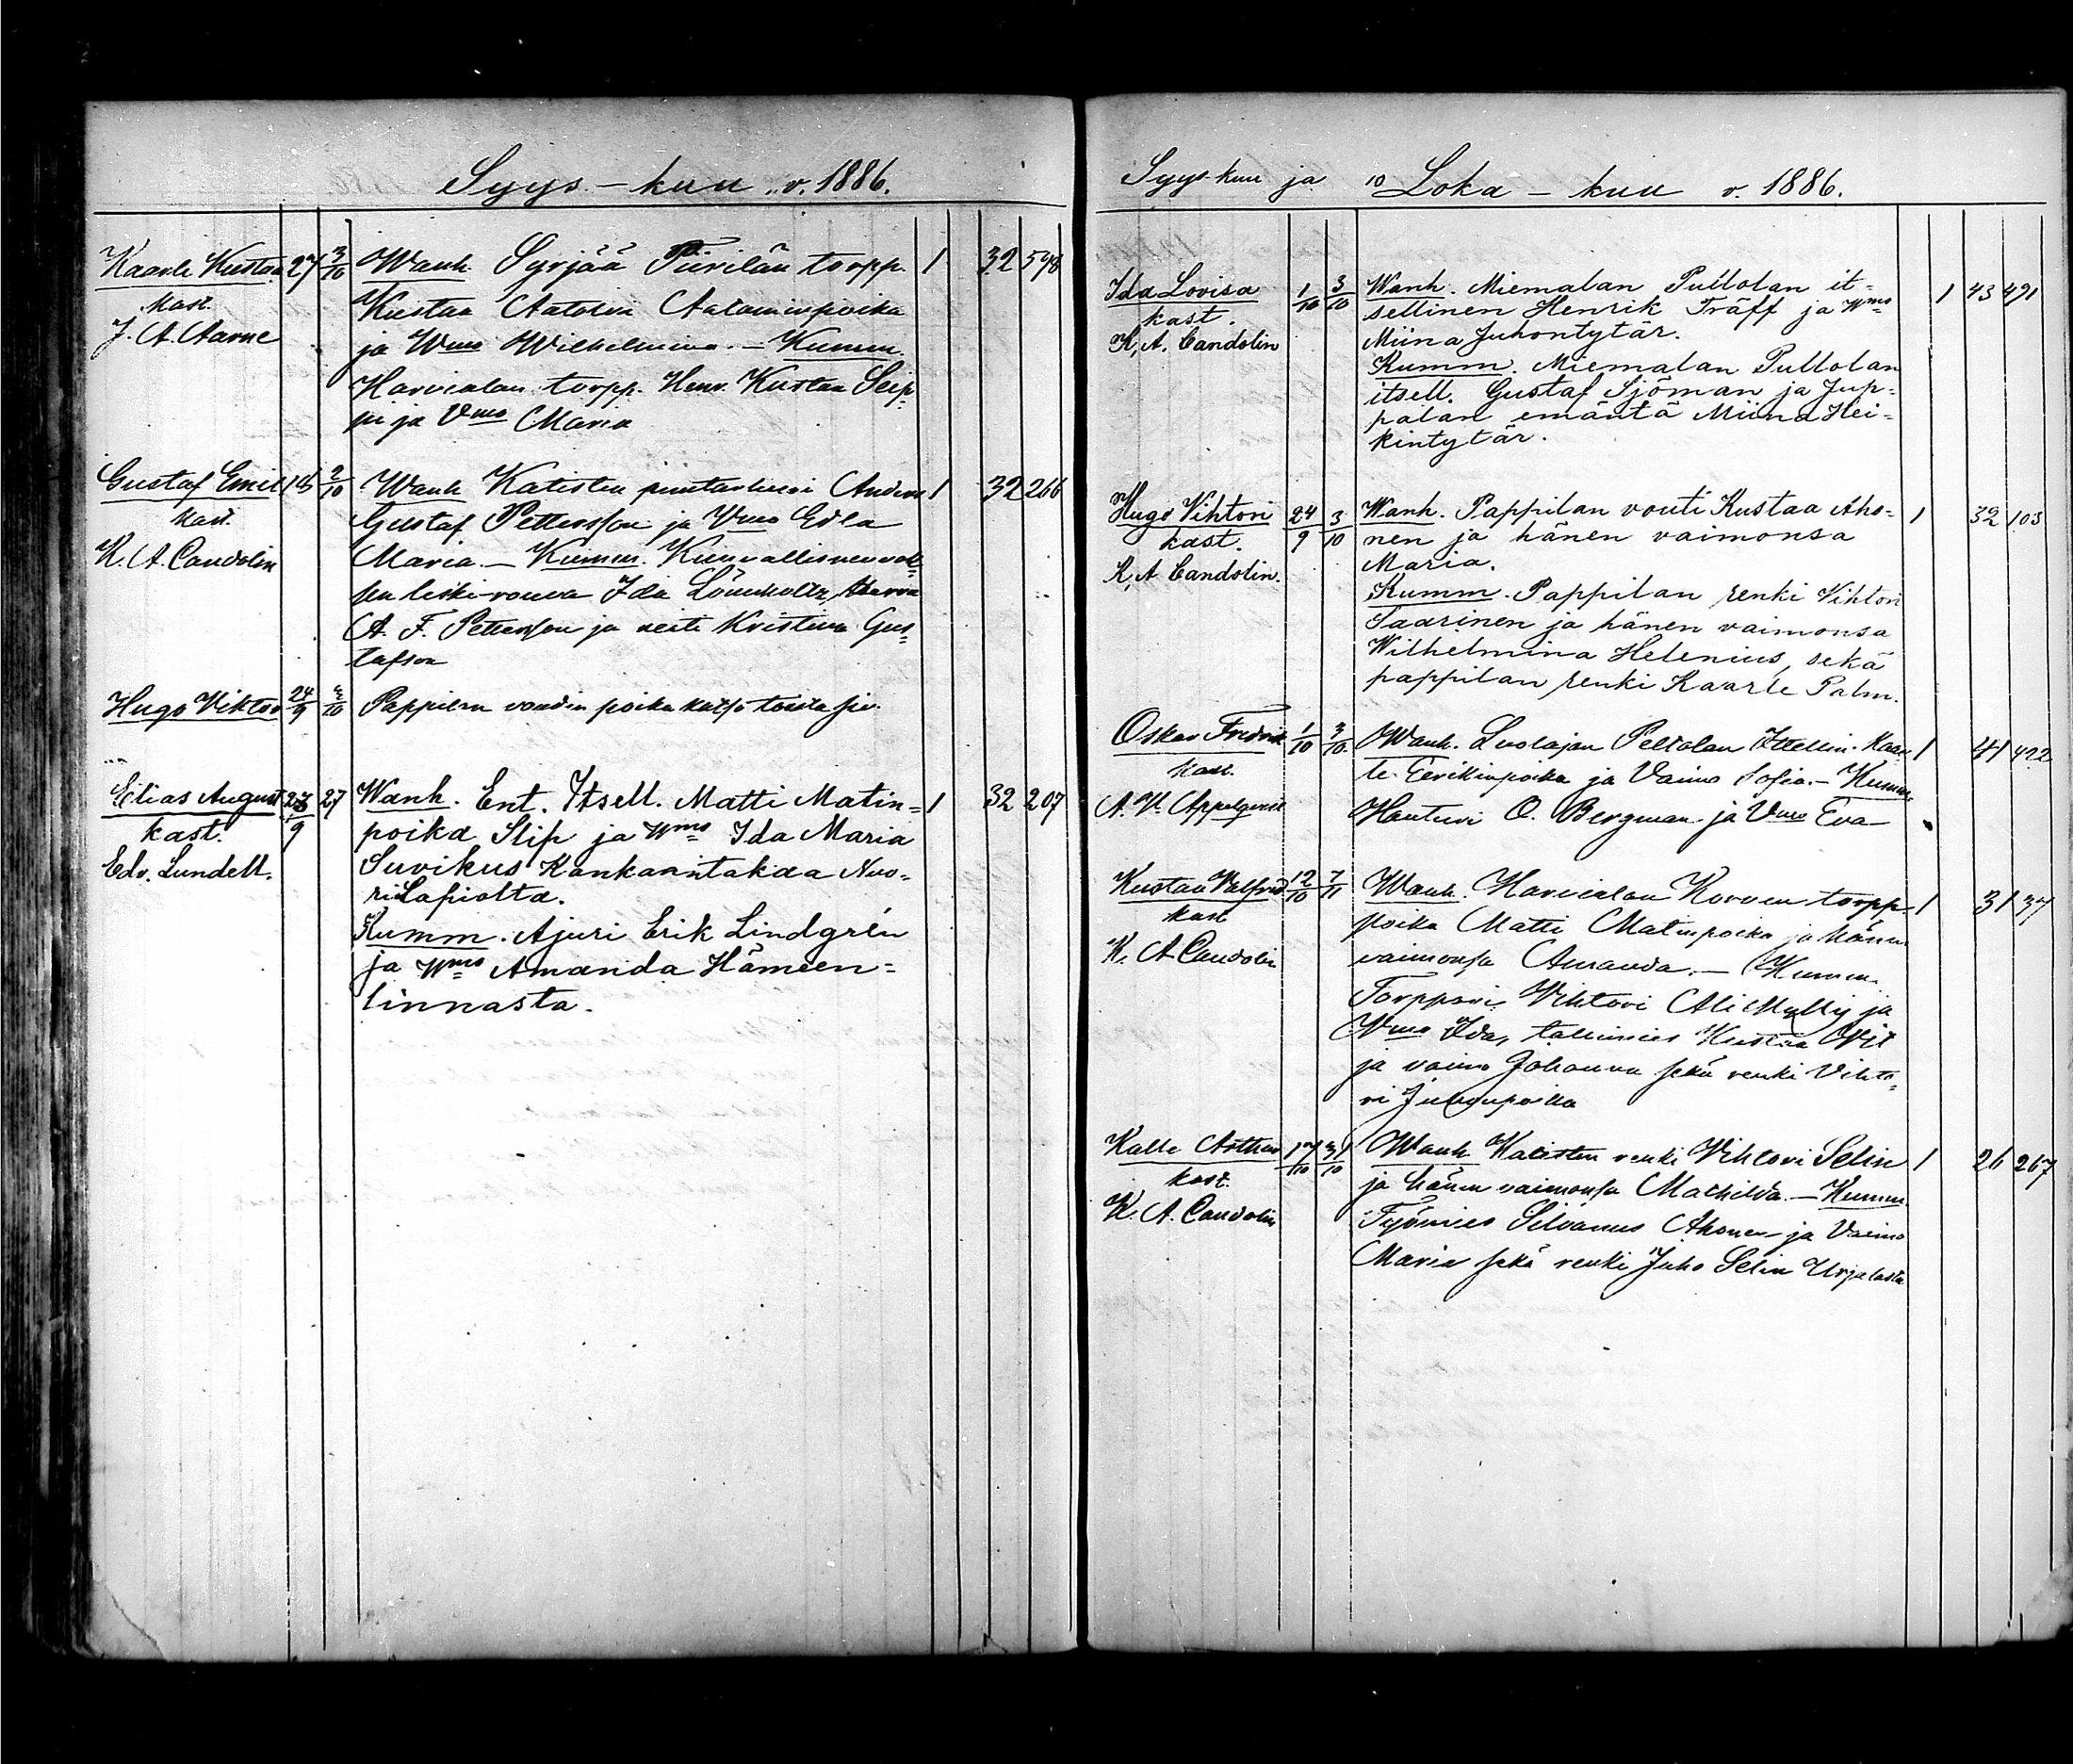 Syys-kuu v. 1886.
Kaarle Kustaa 27 3/10 Wanh. Syrjää Piirilän torpp. 1 32 598
kast. Kustaa Aatolin Aataminpoika
J. A. Aarne ja Wmo Wilhelmina. — Kumm.
Harvialan torpp. Henr. Kustaa Seip-
pi ja Vmo Maria
Gustaf Emil 18 2/10 Wanh Katisten puutarhuri Anders 1 32 266
kast. Gustaf Pettersson ja Vmo Edla
K. A. Candolin Maria — Kumm. Kunnallisneuvok-
sen leski-rouva Ida Lönnholtz, herra
A. F. Petterson ja neiti Kristina Gus-
tafson
Hugo Viktor 24/9 3/10 Pappilan voudin poika katso toista siv.
Elias August 23/9 27 Wanh. Ent. Itsell. Matti Matin- 1 32 207
kast. poika Slip ja Wmo Ida Maria
Edv. Lundell. Suvikus Kankaantakaa Nuo-
ri Lapiolta.
Kumm. Ajuri Erik Lindgrén
ja Wmo Amanda Hämeen-
linnasta.
Syys-kuu ja 10 Loka-kuu v. 1886.
Ida Lovisa 1/10 3/10 Wanh. Miemalan Pullolan it- 1 43 491
kast. sellinen Henrik Träff ja Wmo
K. A. Candolin Miina Juhontytär.
Kumm. Miemalan Pullolan
itsell. Gustaf Sjöman ja Jup-
palan emäntä Miina Hei-
kintytär.
Hugo Vihtori 24/9 3/10 Wanh. Pappilan vouti Kustaa Aho- 1 32 103
kast. nen ja hänen vaimonsa
K. A. Candolin. Maria.
Kumm. Pappilan renki Vihtori
Saarinen ja hänen vaimonsa
Wilhelmina Helenius, sekä
pappilan renki Kaarle Palm.
Oskar Fredrik 1/10 3/10. Wanh. Luolajan Peltolan Itsellin. Kaar- 1 41 422
kast. le Eerikinpoika ja Vaimo Sofia. — Kumm.
Hanturi O. Bergman ja Vmo Eva
Kustaa Valfrid 12/10 7/11 Wanh. Harvialan Korven torpp. 1 31 37
kast poika Matti Matinpoika ja hänen
K. A. Candolin vaimonsa Amanda. — Kumm.
Torppari Vihtori Ali Mylly ja
Vmo Ida, tallimies Kustaa
ja vaimo Johanna sekä renki Vihto-
ri Juhonpoika
Kalle Arthur 17/10 31/10 Wanh. Katisten renki Vihtori Selin 1 26 267
kast. ja hänen vaimonsa Mathilda. — Kumm.
K. A. Candolin Työmies Silvanus Ahonen ja Vaimo
Maria sekä renki Juho Selin Urjalasta